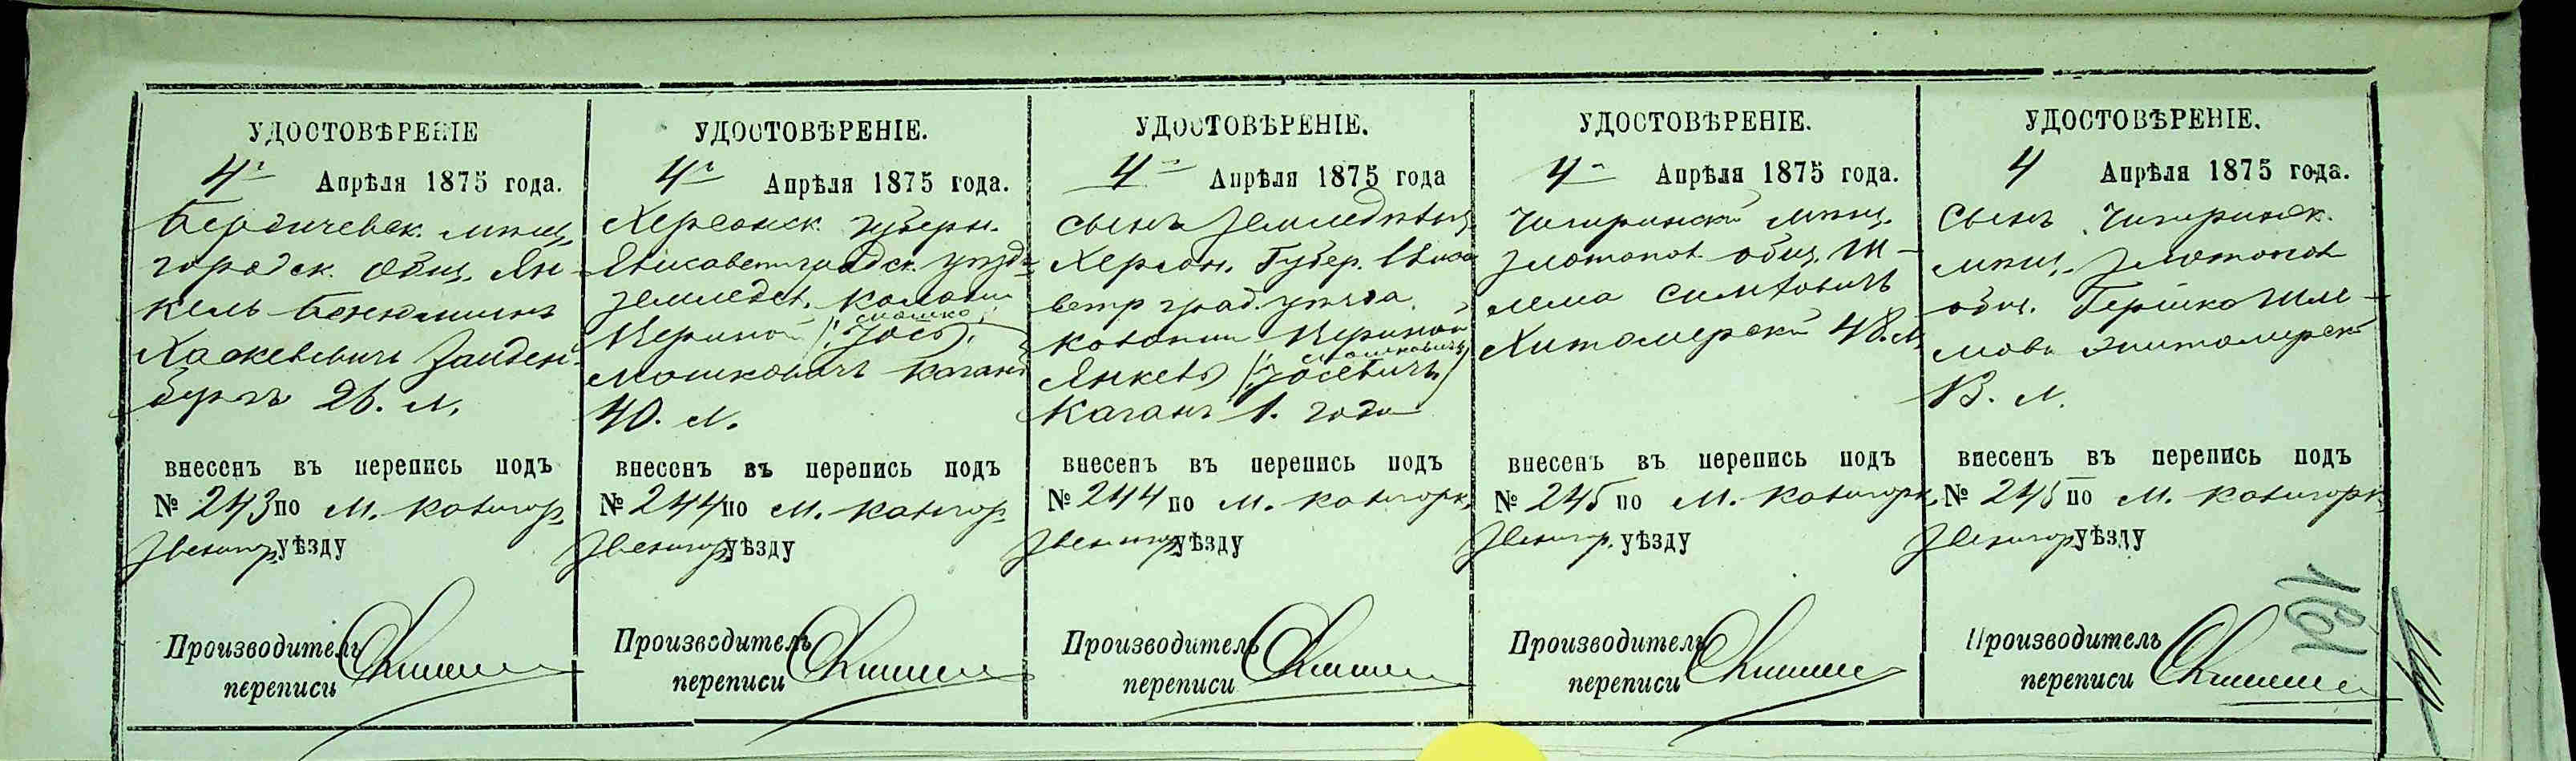 УДОСТОВѢРЕНІЕ
4го Апрѣля 1875 года.
Бердичевск. мѣщ.
городск. общ. Ян-
кель Бенюминъ
Хаскелевичъ Зайден-
бергъ 26. л.
внесенъ въ перепись подъ
№ 243 по М. Кальнор.
Звенигор. уѣзду
Производитель
переписи
УДОСТОВѢРЕНІЕ.
4го Апрѣля 1875 года.
Херсонск. губерн.
Елисаветградск. уѣзда
земледѣл. колоніи
Мошко
(: Іось :)
Мошковичъ Каганъ
40. л.
внесенъ въ перепись подъ
№ 244 по М. Калигор.
Звенигор. уѣзду
Производитель
переписи
УДОСТОВѢРЕНІЕ.
4го Апрѣля 1875 года
сынъ земледѣльц.
Херсон. Губер. Елиса
ветр град. уѣзда
колоніи
Мошковичъ
Янкель (: Іосевичъ :)
Каганъ 1. года
внесенъ въ перепись подъ
№ 244 по М. Калигорк.
Звенигор. уѣзду
Производитель
переписи
УДОСТОВѢРЕНІЕ.
4го Апрѣля 1875 года.
Чигиринскій мѣщ.
Златопол. общ. Ш-
лема Симховичъ
Житомирскій 48. л.
внесенъ въ перепись подъ
№ 245 по М. Калигорк.
Звенигор. уѣзду
Производитель
переписи
УДОСТОВѢРЕНІЕ.
4 Апрѣля 1875 года.
Сынъ Чигиринск.
мѣщ. Златопол
общ. Гершко Шле-
мовъ Житомирскій
13. л.
внесенъ въ перепись подъ
№ 245 по М. Калигорк.
Звенигор. уѣзду
Производитель
переписи
191